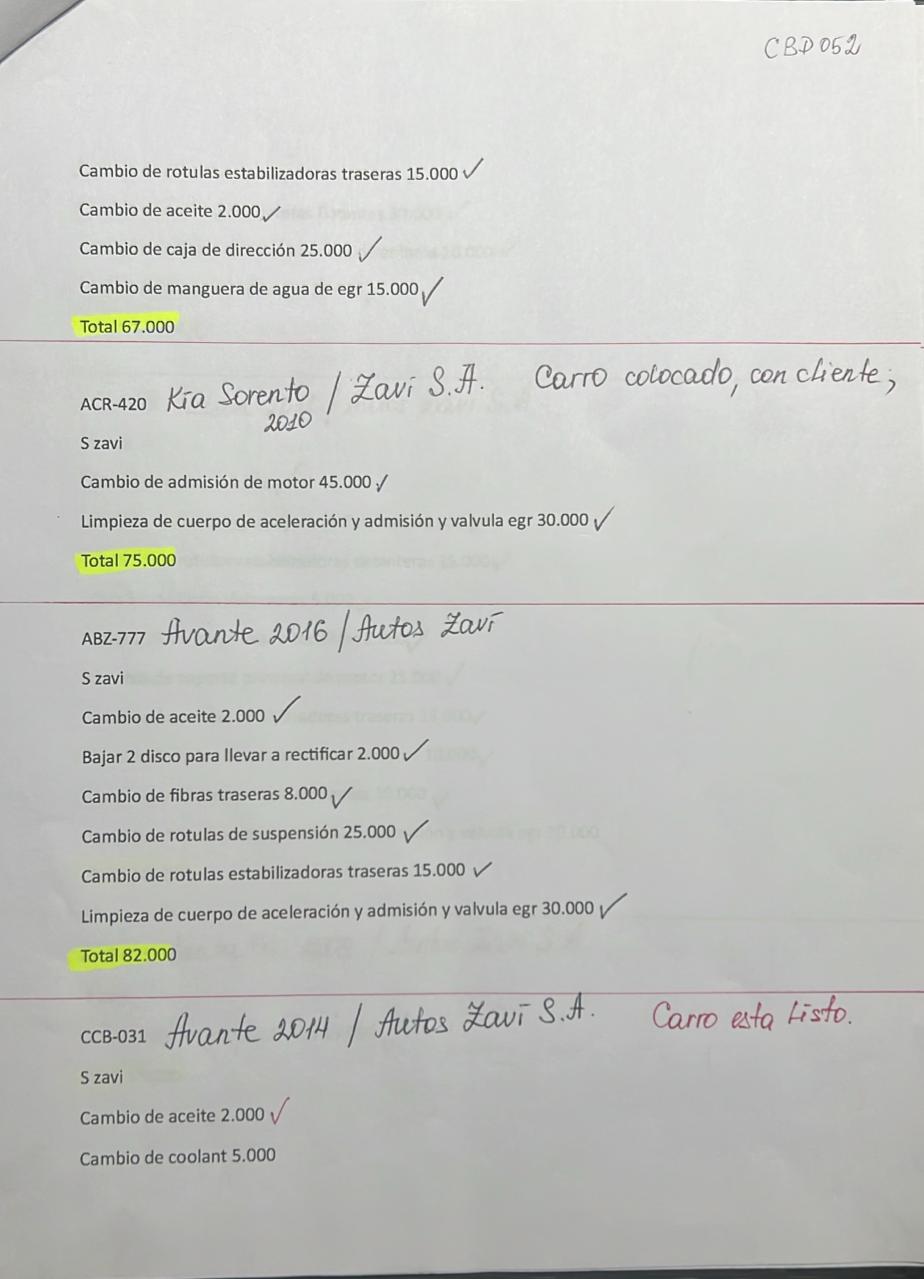 CBD052
Cambio de rotulas estabilizadoras traseras 15.000 ✓
Cambio de aceite 2.000 ✓
Cambio de caja de dirección 25.000 ✓
Cambio de manguera de agua de egr 15.000 ✓
Total 67.000
ACR-420 Kia Sorento / Zavi S.A. Carro colocado, con cliente;
2010
S zavi
Cambio de admisión de motor 45.000 ✓
Limpieza de cuerpo de aceleración y admisión y valvula egr 30.000 ✓
Total 75.000
ABZ-777 Avante 2016 / Autos Zavi
S zavi
Cambio de aceite 2.000 ✓
Bajar 2 disco para llevar a rectificar 2.000 ✓
Cambio de fibras traseras 8.000 ✓
Cambio de rotulas de suspensión 25.000 ✓
Cambio de rotulas estabilizadoras traseras 15.000 ✓
Limpieza de cuerpo de aceleración y admisión y valvula egr 30.000 ✓
Total 82.000
CCB-031 Avante 2014 / Autos Zavi S.A. Carro esta Listo.
S zavi
Cambio de aceite 2.000 ✓
Cambio de coolant 5.000